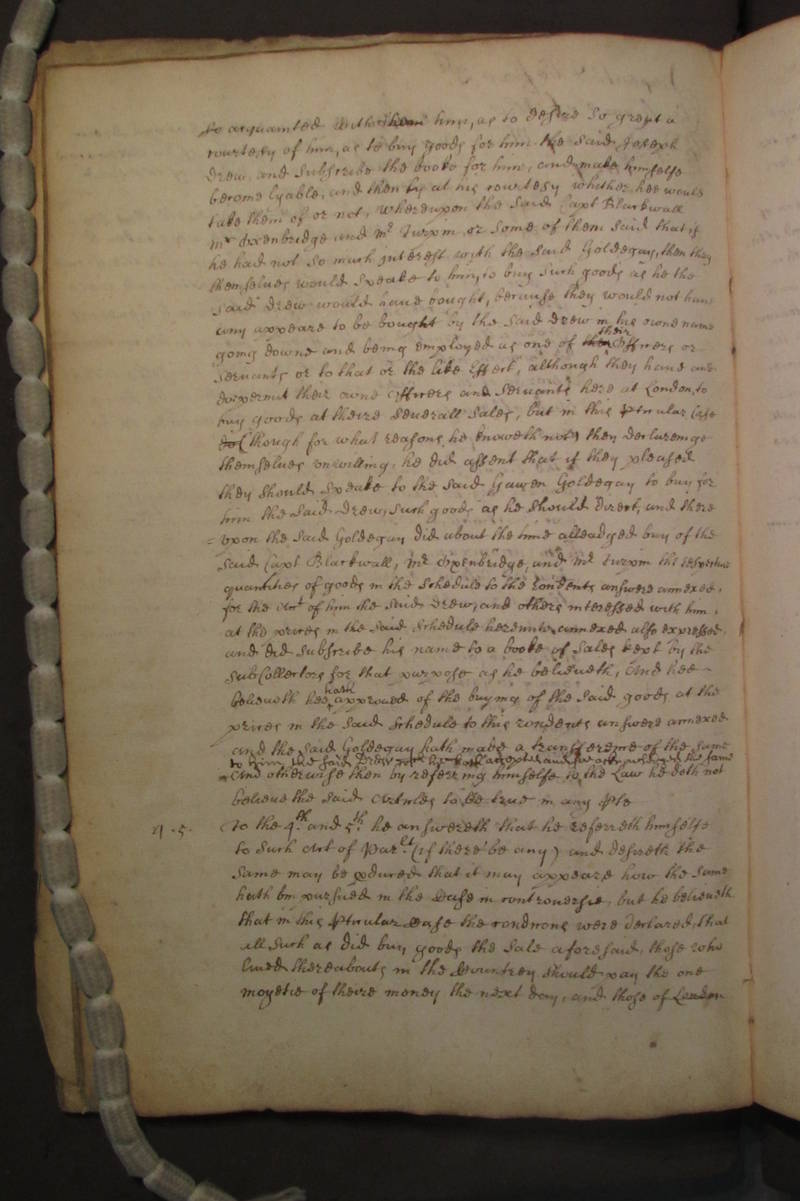 so acquainted with him, as to desire so great a
courtesy of him, as to buy goods for him the said Joseph
Drew, and subscribe the booke for him, and make himselfe
become lyable, and then ly at his courtesy whether hee would
take them of or not, whereupon the said Capt Blackwall
Mr Oxenbridge and Mr Turpin or some of them said that if
he had not so much interest with the said Goldegay, then they
themselves would speake to him, to buy such goods as he the
said Drew would have bought, because they would not have
any appeare to be bought by the said Drew in his owne name
going downe and being employed as one of their Officers or
servants or to that or the like Effect, although they have and
doe permit their owne Officers and servants here at London, to
buy goods at theire severall sales, but in this pticular Case
(though for what reasons he knoweth not) they declareinge
themselves unwilling, he did assent that if they pleased
they should speake to the said Gawen Goldegay to buy for
him the said Drew, such goods as he should direct, and there
=upon the said Goldegay did about the time alleadged buy of the
said Capt Blackwall, Mr Oxenbridge, and Mr Turpin the respective
quantities of goods in the schedule to this rondents answere annexed,
for the Act of him the said Drew, and others interessed with him,
at the prices in the said schedule hereunto annexed also expressed,
and did subscribe his name to a booke of sales kept by the
SubCollectors for that purpose as he believeth, And hee
believeth hee hath approved of the buying of the said goods at the
prices in the said schedule to this rondents answere annexed
and the said Goldegay hath made a transfereinge of the same
to him the said Drew accepted and the same
And otherwise then by referring himselfe to the Law he doth not
believe the said Articles to be true in any pte
4.5. To the 4th and 5th he answereth that he referreth himselfe
to such Act of Parlt (if there be any) and desireth the
same may be pduced that it may appeare how the same
hath bin pursued in the Case in controversie, but he believeth
that in this pticular Case the condicons were declared, that
all such as did buy goods the sale aforesaid, those who
lived thereabouts in the Countrey should pay the one
moyetie of theire money the next day, and those of London